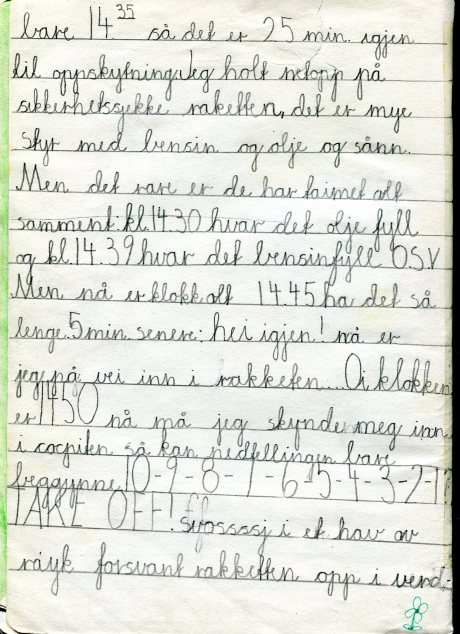 bare 14³⁵ så det er 25 min. igjen
til oppskytning. Jeg holt netopp på
sikkerhetssjekke raketten, det er mye
styr med bensin og olje og sånn.
Men det rare er de har taimet alt
samment: kl.14.30 hvar det olje fyll
og kl.14.39 hvar det bensinfyll OSV
Men nå er klokk alt 14.45 ha det så
lenge. 5 min senere: hei igjen! nå er
jeg på vei inn i rakketen... Oi klokken
er 14.50 nå må jeg skynde meg inn
i cocpiten så kan nedtellingen bare
beggynne 10-9-8-7-6-5-4-3-2-1?
TAKE OFF! svosssssj i et hav av
røyk forsvant rakketten opp i verd-